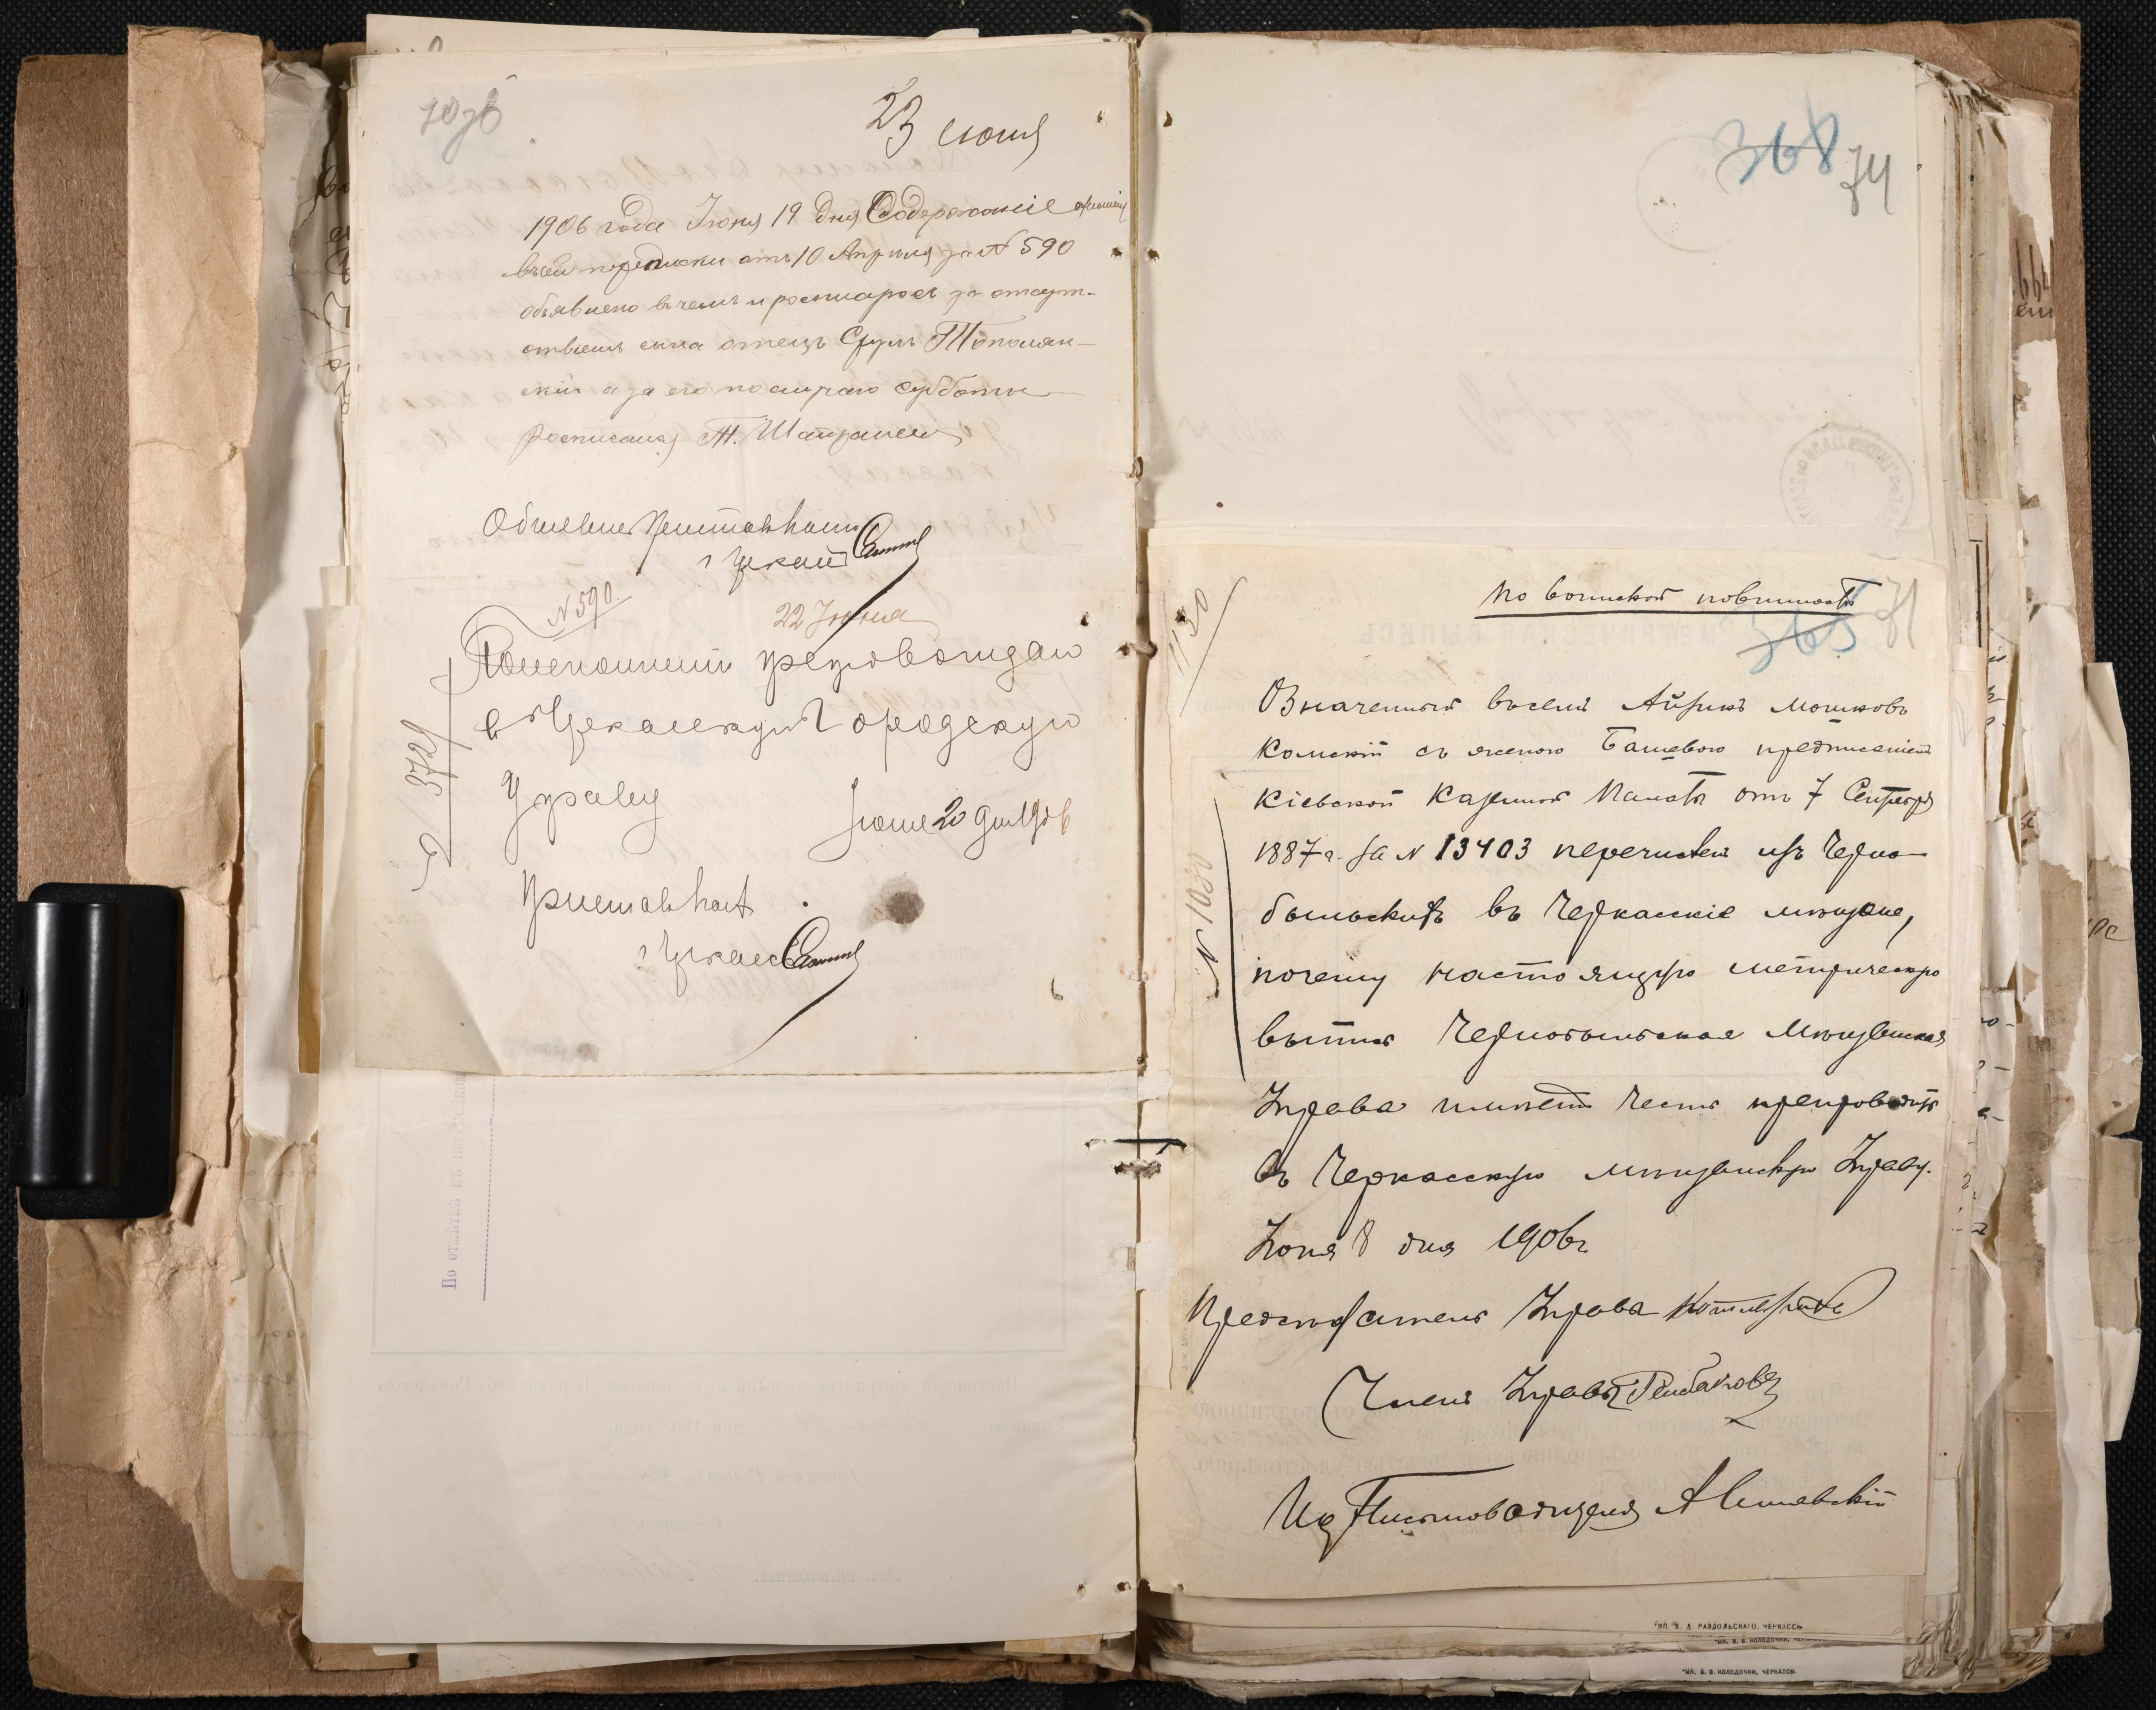 70 об
23 июня
1906 года Июня 19 дня Содержание
всей переписки отъ 10 Апреля за № 590
объявлено въ чемъ и росписался за отсут-
ствіемъ сына отецъ Сруль Тополян-
скій а за его по случаю субботы
росписался
Объявилъ Приставъ
г. Черкассъ
№ 590.
22 Июня
Исполненный препровождаю
въ Черкасскую Городскую
Управу
Июня 20 дня 1906
№ 3729
Приставъ
г. Черкассъ
По отмѣткѣ
368
74
По воинской повинности
365
71
1130
№ 1080
Означенный въ семъ Айзикъ Мошковъ
Комскій съ женою Башевою предписаніемъ
Кіевской Казенной Палаты отъ 7 Сентября
1887 г. за № 13403 перечисленъ изъ Черно-
быльскихъ въ Черкасскіе мѣщане,
почему настоящую метрическую
выпись Чернобыльская Мѣщанская
Управа имѣетъ честь препроводить
въ Черкасскую мѣщанскую Управу.
Июня 8 дня 1906 г.
Предсѣдатель Управы
Членъ Управы
И д Письмоводителя
ТИП. Х. Л. РАЗДОЛЬСКАГО, ЧЕРКАССЫ.
ТИП. В. В. КОЛОДОЧКИ, ЧЕРКАССЫ.